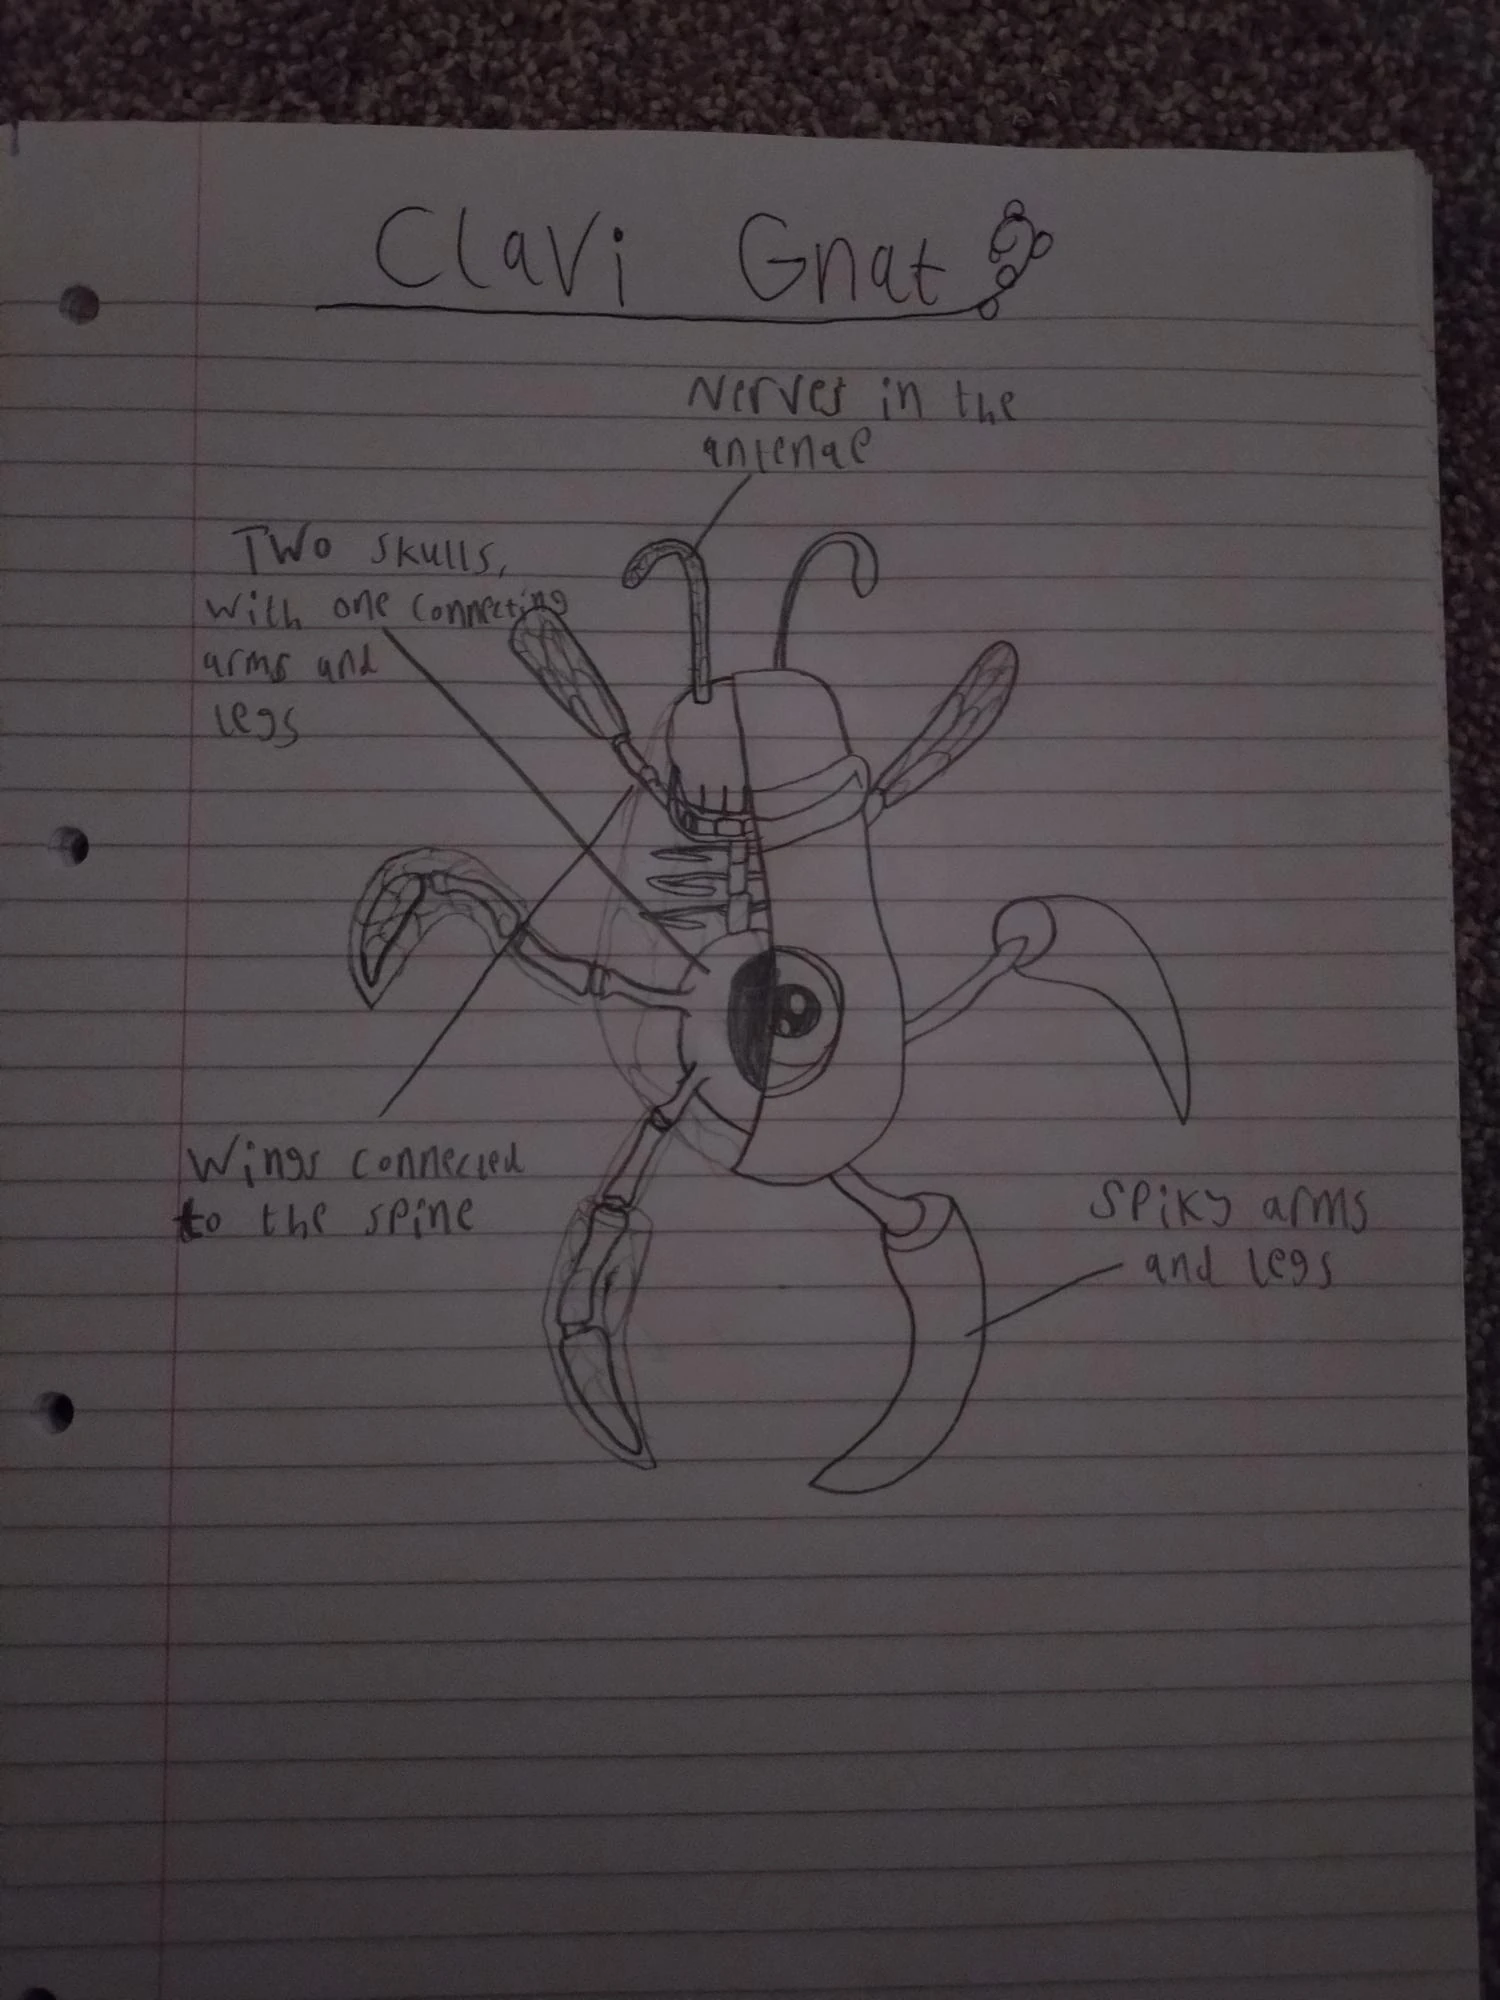 Clavi Gnat
Nerves in the
antenae
Two skulls,
with one connecting
arms and
legs
Wings connected
to the spine
Spiky arms
and legs